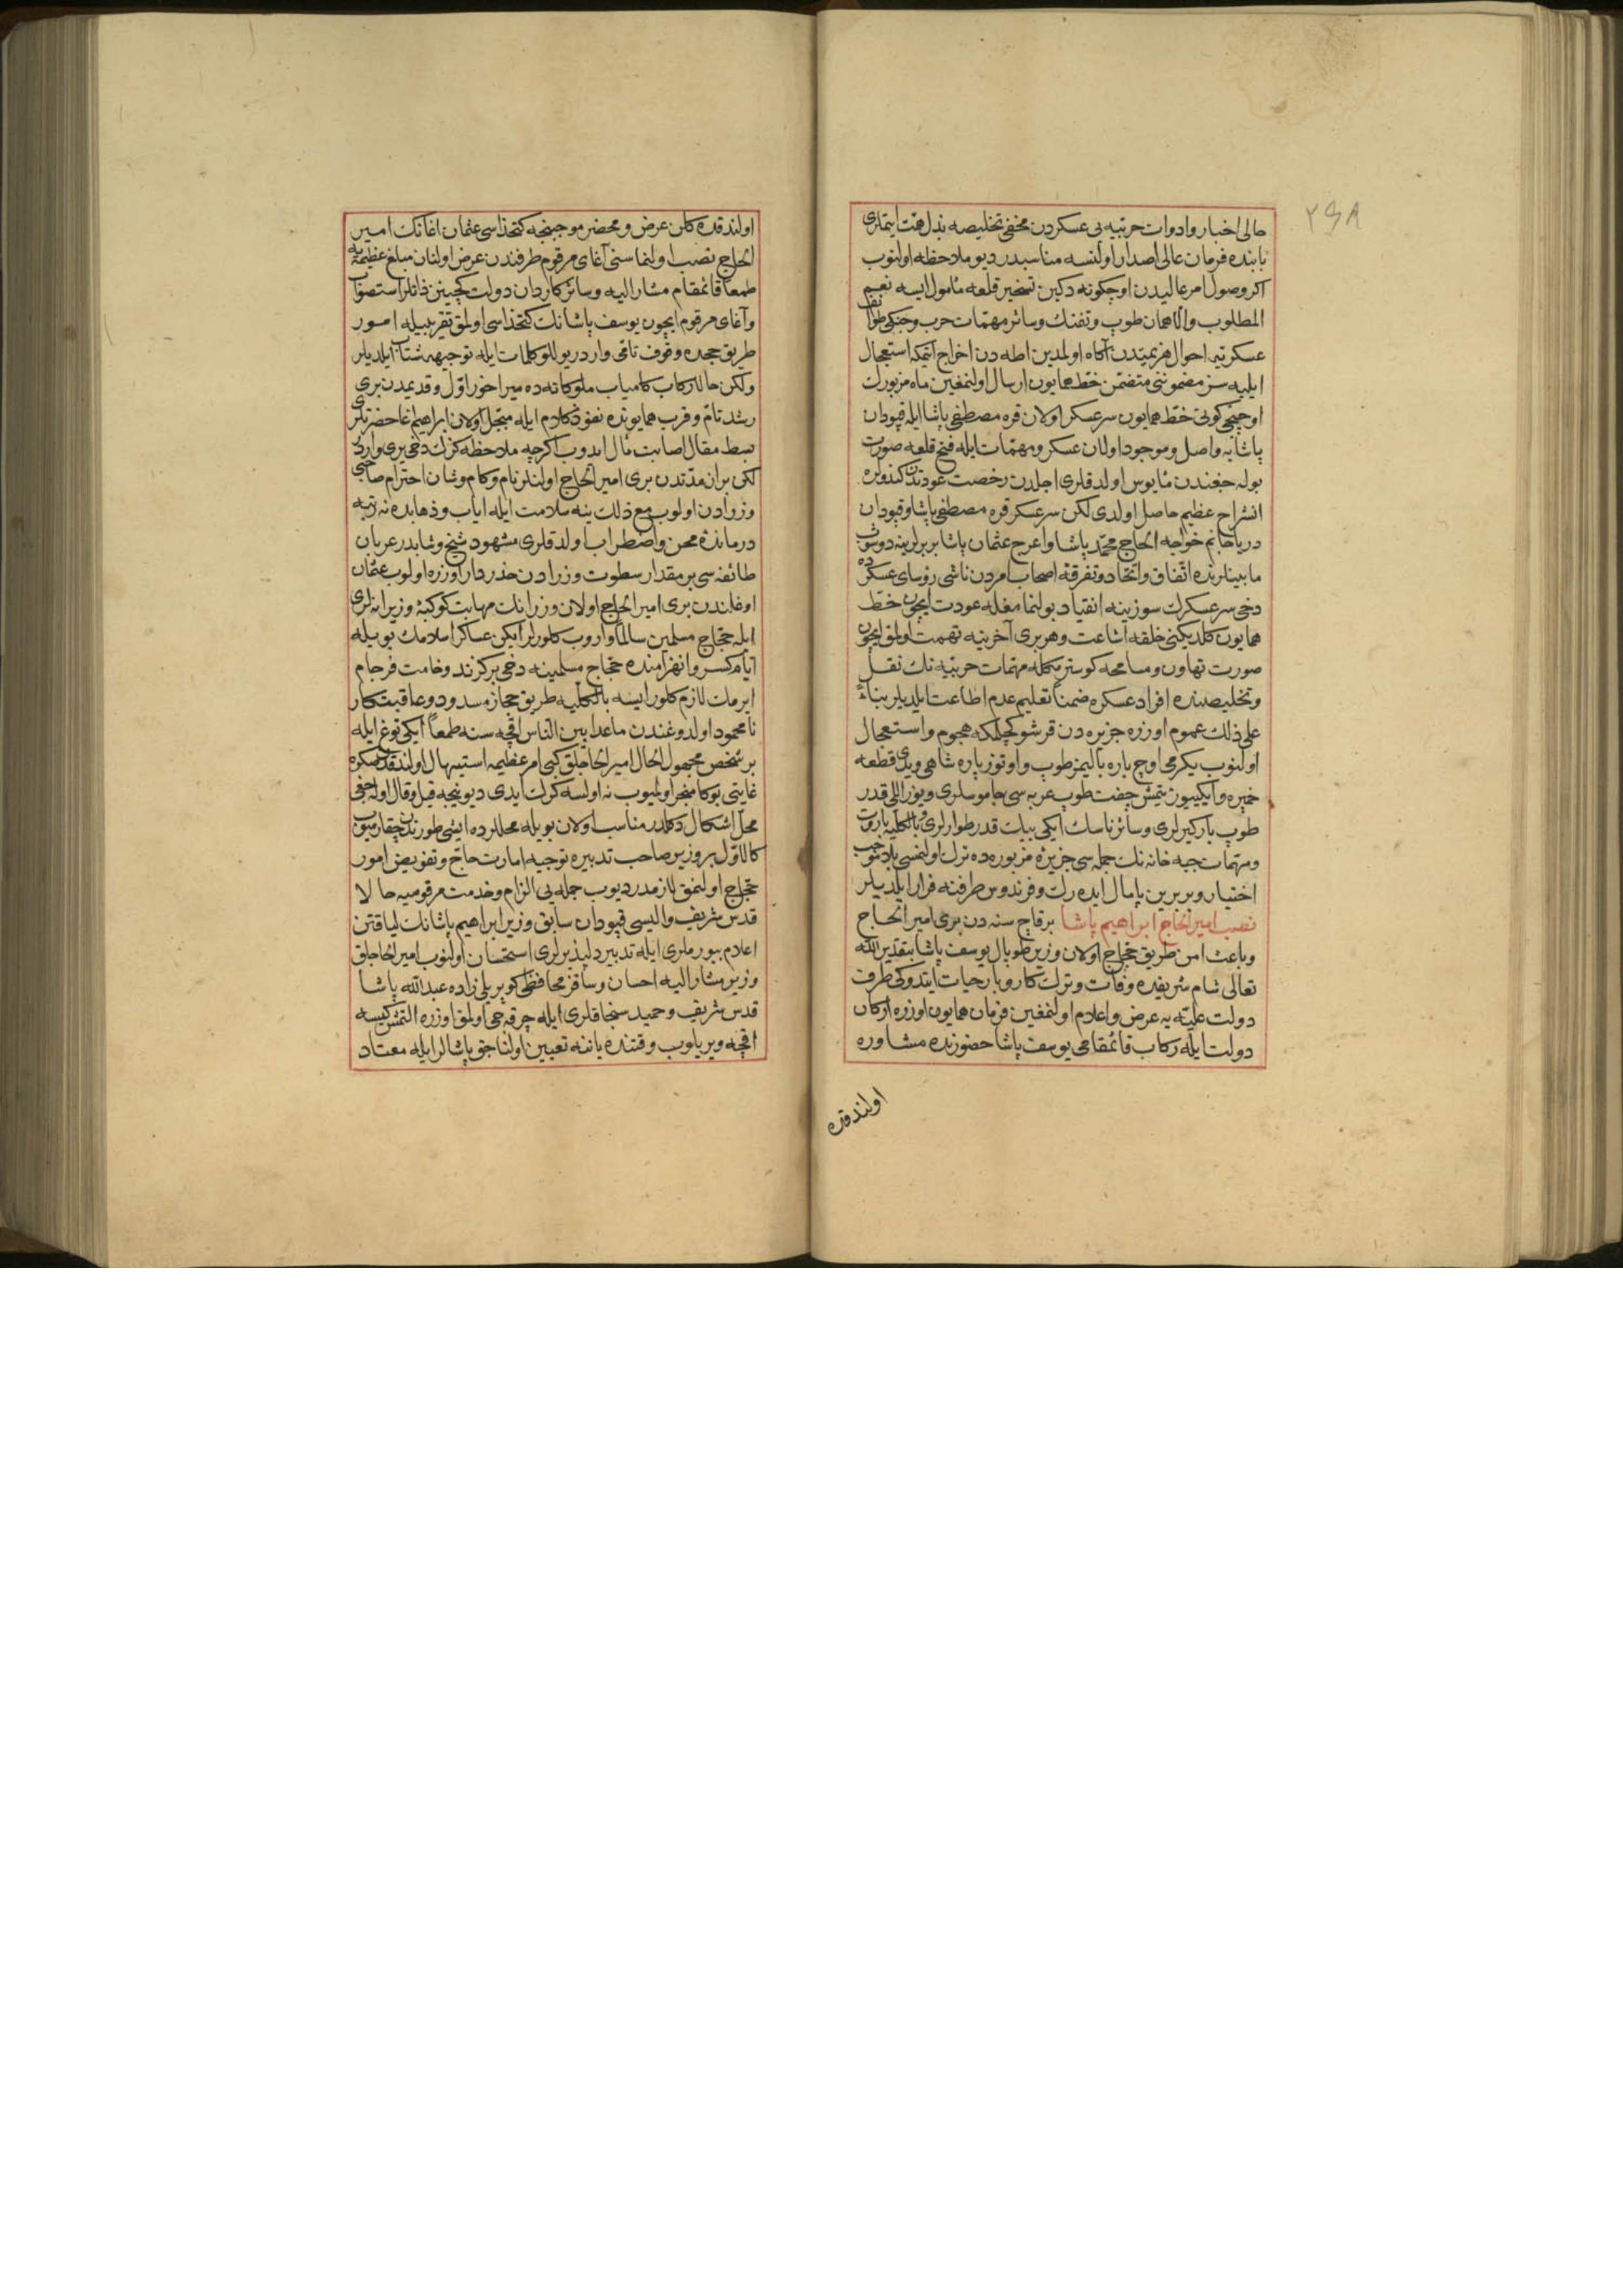 ٢٩٨
حالی اخبار و ادوات حربیه یی عسکردن مخفی تخلیصه بذل همت ایتملری
بابنده فرمان عالی اصدار اولنسه مناسبدر دیو ملاحظه اولنوب
اکر وصول امر عالیدن اوچ کونه دکین تسخیر قلعه مأمول ایسه نعیم
المطلوب والا همان طوپ و تفنك و سائر مهمات حرب و جنکی طوا نفل
عسکریه احوال هزیمتدن آکاه اولمدین اطه دن اخراج ایتمکه استعجال
ایلیه سز مضموننی متضمن خط همایون ارسال اولنمغین ماه مزبورك
اوچنجی کونی خط همایون سرعسکر اولان قره مصطفی پاشا ایله قپودان
پاشایه واصل و موجود اولان عسکر و مهمات ایله فتح قلعه صورت
بوله جغندن مأیوس اولدقلری اجلدن رخصت عودتدن کندولره
انشراح عظیم حاصل اولدی لکن سرعسکر قره مصطفی پاشا و قپودان
دریا جانم خواجه الحاج محمد پاشا و اعرج عثمان پاشا بربرلرینه دوشوب
مابینلرنده اتفاق و اتحاد و تفرقهٔ اصحاب امردن ناشی رؤسای عسکرده
دخی سرعسکرك سوزینه انقیاد بولنمامغله عودت ایچون خط
همایون کلدیکنی خلقه اشاعت و هر بری آخرینه تهمت اولمق ایچون
صورت تهاون و مسامحه کوسترمکله مهمات حربیه نك نقل
و تخلیصنده افراد عسکره ضمنا تعلیم عدم اطاعت ایلدیلر بناءً
علی ذلك عموم اوزره جزیره دن قرشو کچلمکه هجوم و استعجال
اولنوب یکرمی اوچ پاره بالیمز طوپ و اوتوز پاره شاهی و یدی قطعه
خمپره و ایکییوز یتمش جفت طوپ عربه سی جاموسلری و یوز اللی قدر
طوپ بارکیرلری و سائر ناسك ایکی بیك قدر طوارلری و بالکلیه باروت
و مهمات جبه خانه نك جمله سی جزیرهٔ مزبوره ده ترك اولنمسی بلا موجب
اختیار و بربرین پامال ایده رك و فرندوس طرفنه فرار ایلدیلر
نصب امیر الحاج ابراهیم پاشا برقاچ سنه دن بری امیر الحاج
و باعث امن طریق حجاج اولان وزیر طوپال یوسف پاشا بتقدیر الله
تعالی شام شریفده وفات و ترك کار و بار حیات ایتدوکی طرف
دولت علیه یه عرض و اعلام اولنمغین فرمان همایون اوزره ارکان
دولت ایله رکاب قائمقامی یوسف پاشا حضورنده مشاوره
اولندقده
اولندقده کلن عرض و محضر موجبنجه کتخداسی عثمان اغانك امیر
الحاج نصب اولنماسنی آغای مرقوم طرفندن عرض اولنان مبالغ عظیمه یه
طمعا قائمقام مشار الیه و سائر کاردان دولت کچینن ذاتلر استصواب
و آغای مرقوم ایچون یوسف پاشانك کتخداسی اولمق تقریبیله امور
طریق حجده وقوف تامی واردر یوللو کلمات ایله توجیهه شتاب ایلدیلر
ولکن حالا رکاب کامیاب ملوکانه ده میراخور اول و قدیمدن بری
رشد تام و قرب همایونده نفوذ کلام ایله مبجل اولان ابراهیم اغا حضرتلری
بسط مقال اصابت مأل ایدوب اکرچه ملاحظه کزك دخی یری واردر
لکن بر آن مدتدن بری امیر الحاج اولنلر نام و کام و شان احترام صاحبی
وزرادن اولوب مع ذلك ینه سلامت ایله ایاب و ذهابده نه رتبه
درماندهٔ محن و اضطراب اولدقلری مشهود شیخ و شابدر عربان
طائفه سی بر مقدار سطوت وزرادن حذردار اوزره اولوب عثمان
اوغلندن بری امیر الحاج اولان وزرانك مهابت کوکبهٔ وزیرانه لری
ایله حجاج مسلمین سالما واروب کلورلر ایکن عساکر اسلامك بویله
ایام کسر و انهزامنده حجاج مسلمینه دخی برکزند وخامت فرجام
ایرمك لازم کلور ایسه بالکلیه طریق حجاز مسدود و عاقبت کار
نامحمود اولدوغندن ماعدا بین الناس اقچه سنه طمعا ایکی توغ ایله
بر شخص مجهول الحال امیر الحاجلق کبی امر عظیمه استیهال اولندقدنصکره
غایتی بوکا منجر اولمیوب نه اولسه کرك ایدی دیو نیجه قیل و قال اوله جغی
محل اشکال دکلدر مناسب اولان بویله محللرده ایشی طورندن چقارمیوب
کالاول بر وزیر صاحب تدبیره توجیه امارت حاج و تفویض امور
حجاج اولنمق لازمدر دیوب جمله یی الزام و خدمت مرقومیه حالا
قدس شریف والیسی قپودان سابق وزیر ابراهیم پاشانك لیاقتن
اعلام بیورملری ایله تدبیر دلپذیرلری استحسان اولنوب امیر الحاجلق
وزیر مشار الیه احسان و ساقز محافظی کوپریلی زاده عبدالله پاشا
قدس شریف و حمید سنجاقلری ایله جرده جی اولمق اوزره التمش کیسه
اقچه ویریلوب وقتنده یاننه تعیین اولناجق پاشالر ایله معتاد